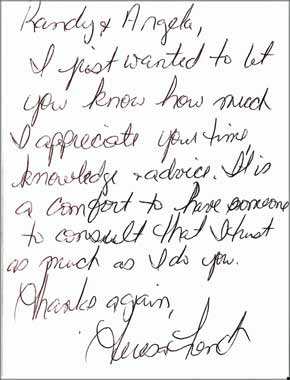 Randy & Angela,
I just wanted to let
you know how much
I appreciate your time,
knowledge & advice. It is
a comfort to have someone
to consult that I trust
as much as I do you.
Thanks again,